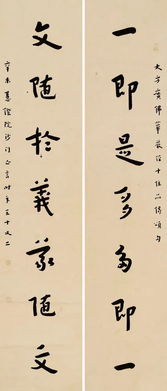 大方廣佛華嚴經十住品偈頌句
一即是多多即一
文随於義義随文
辛未慧 院沙門 言時年五十又二